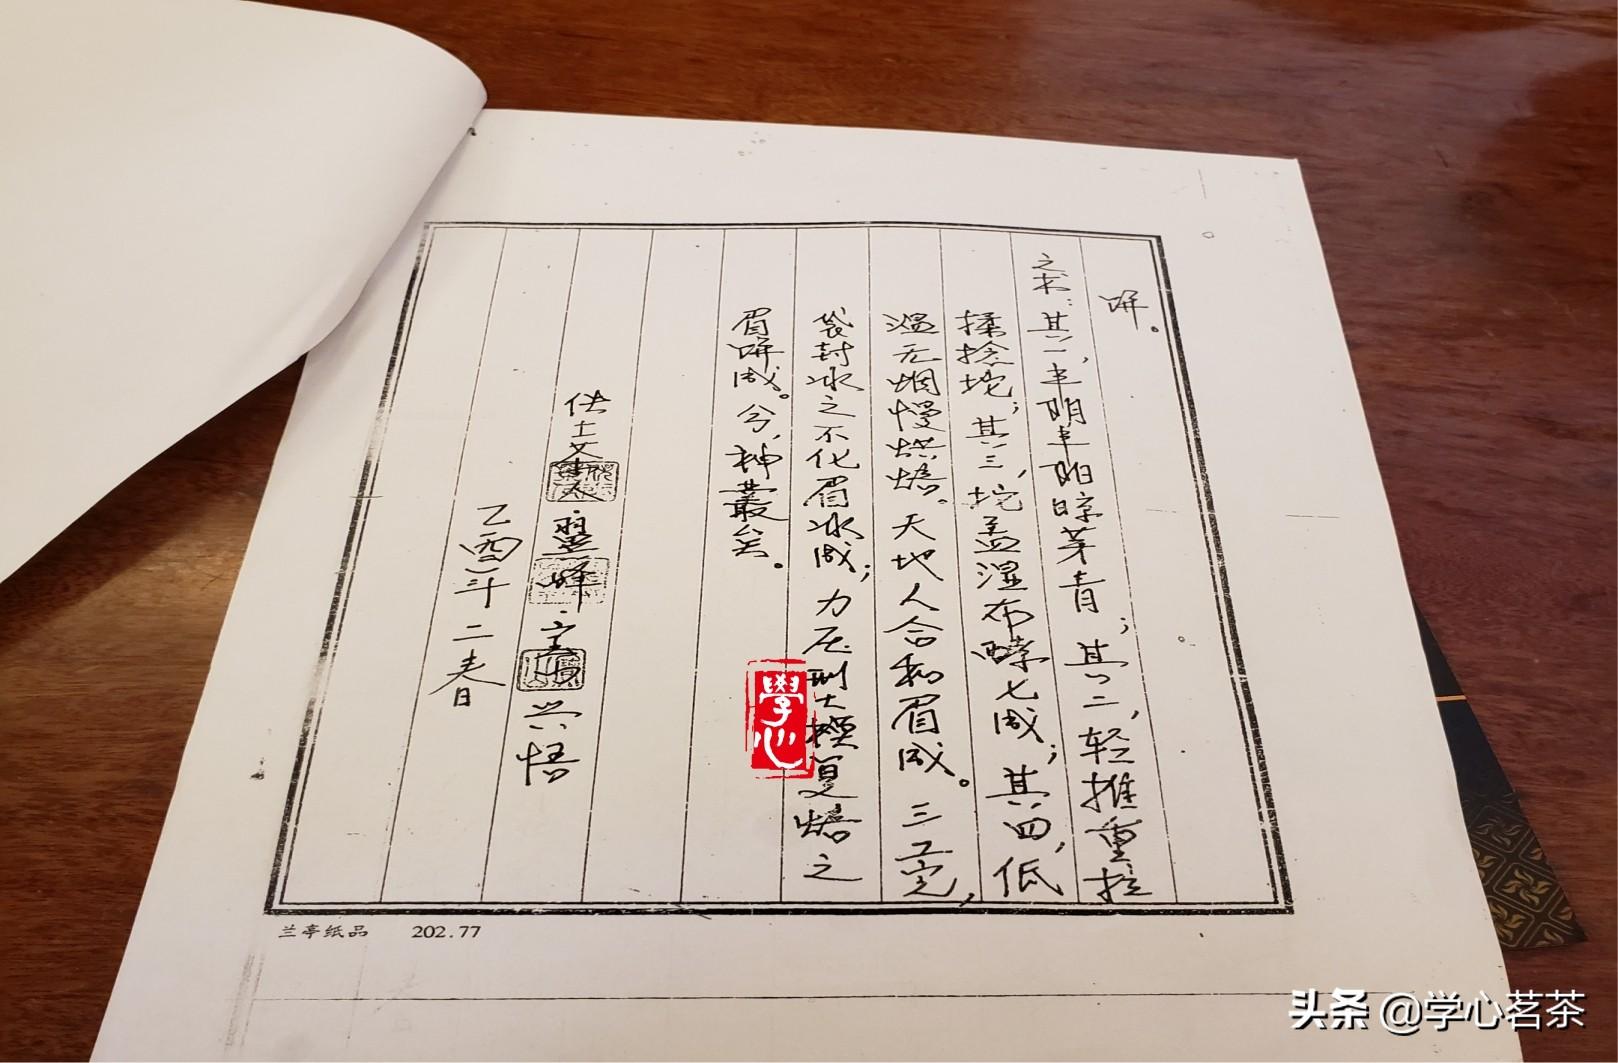 饼。
之术：其一，半阴半阳晾芽青；其二，轻推重拉
揉捻坨；其三，坨盖湿布酵七成；其四，低
温无烟慢烘焙。天地人合和眉成。三工完，
袋封冰之不化眉冰成；力压刑大模复焙之
眉饼成。兮，神叢矣。
仕土 翌峰 兴悟
乙酉年二春
学心
兰亭纸品 202.77
头条 @学心茗茶